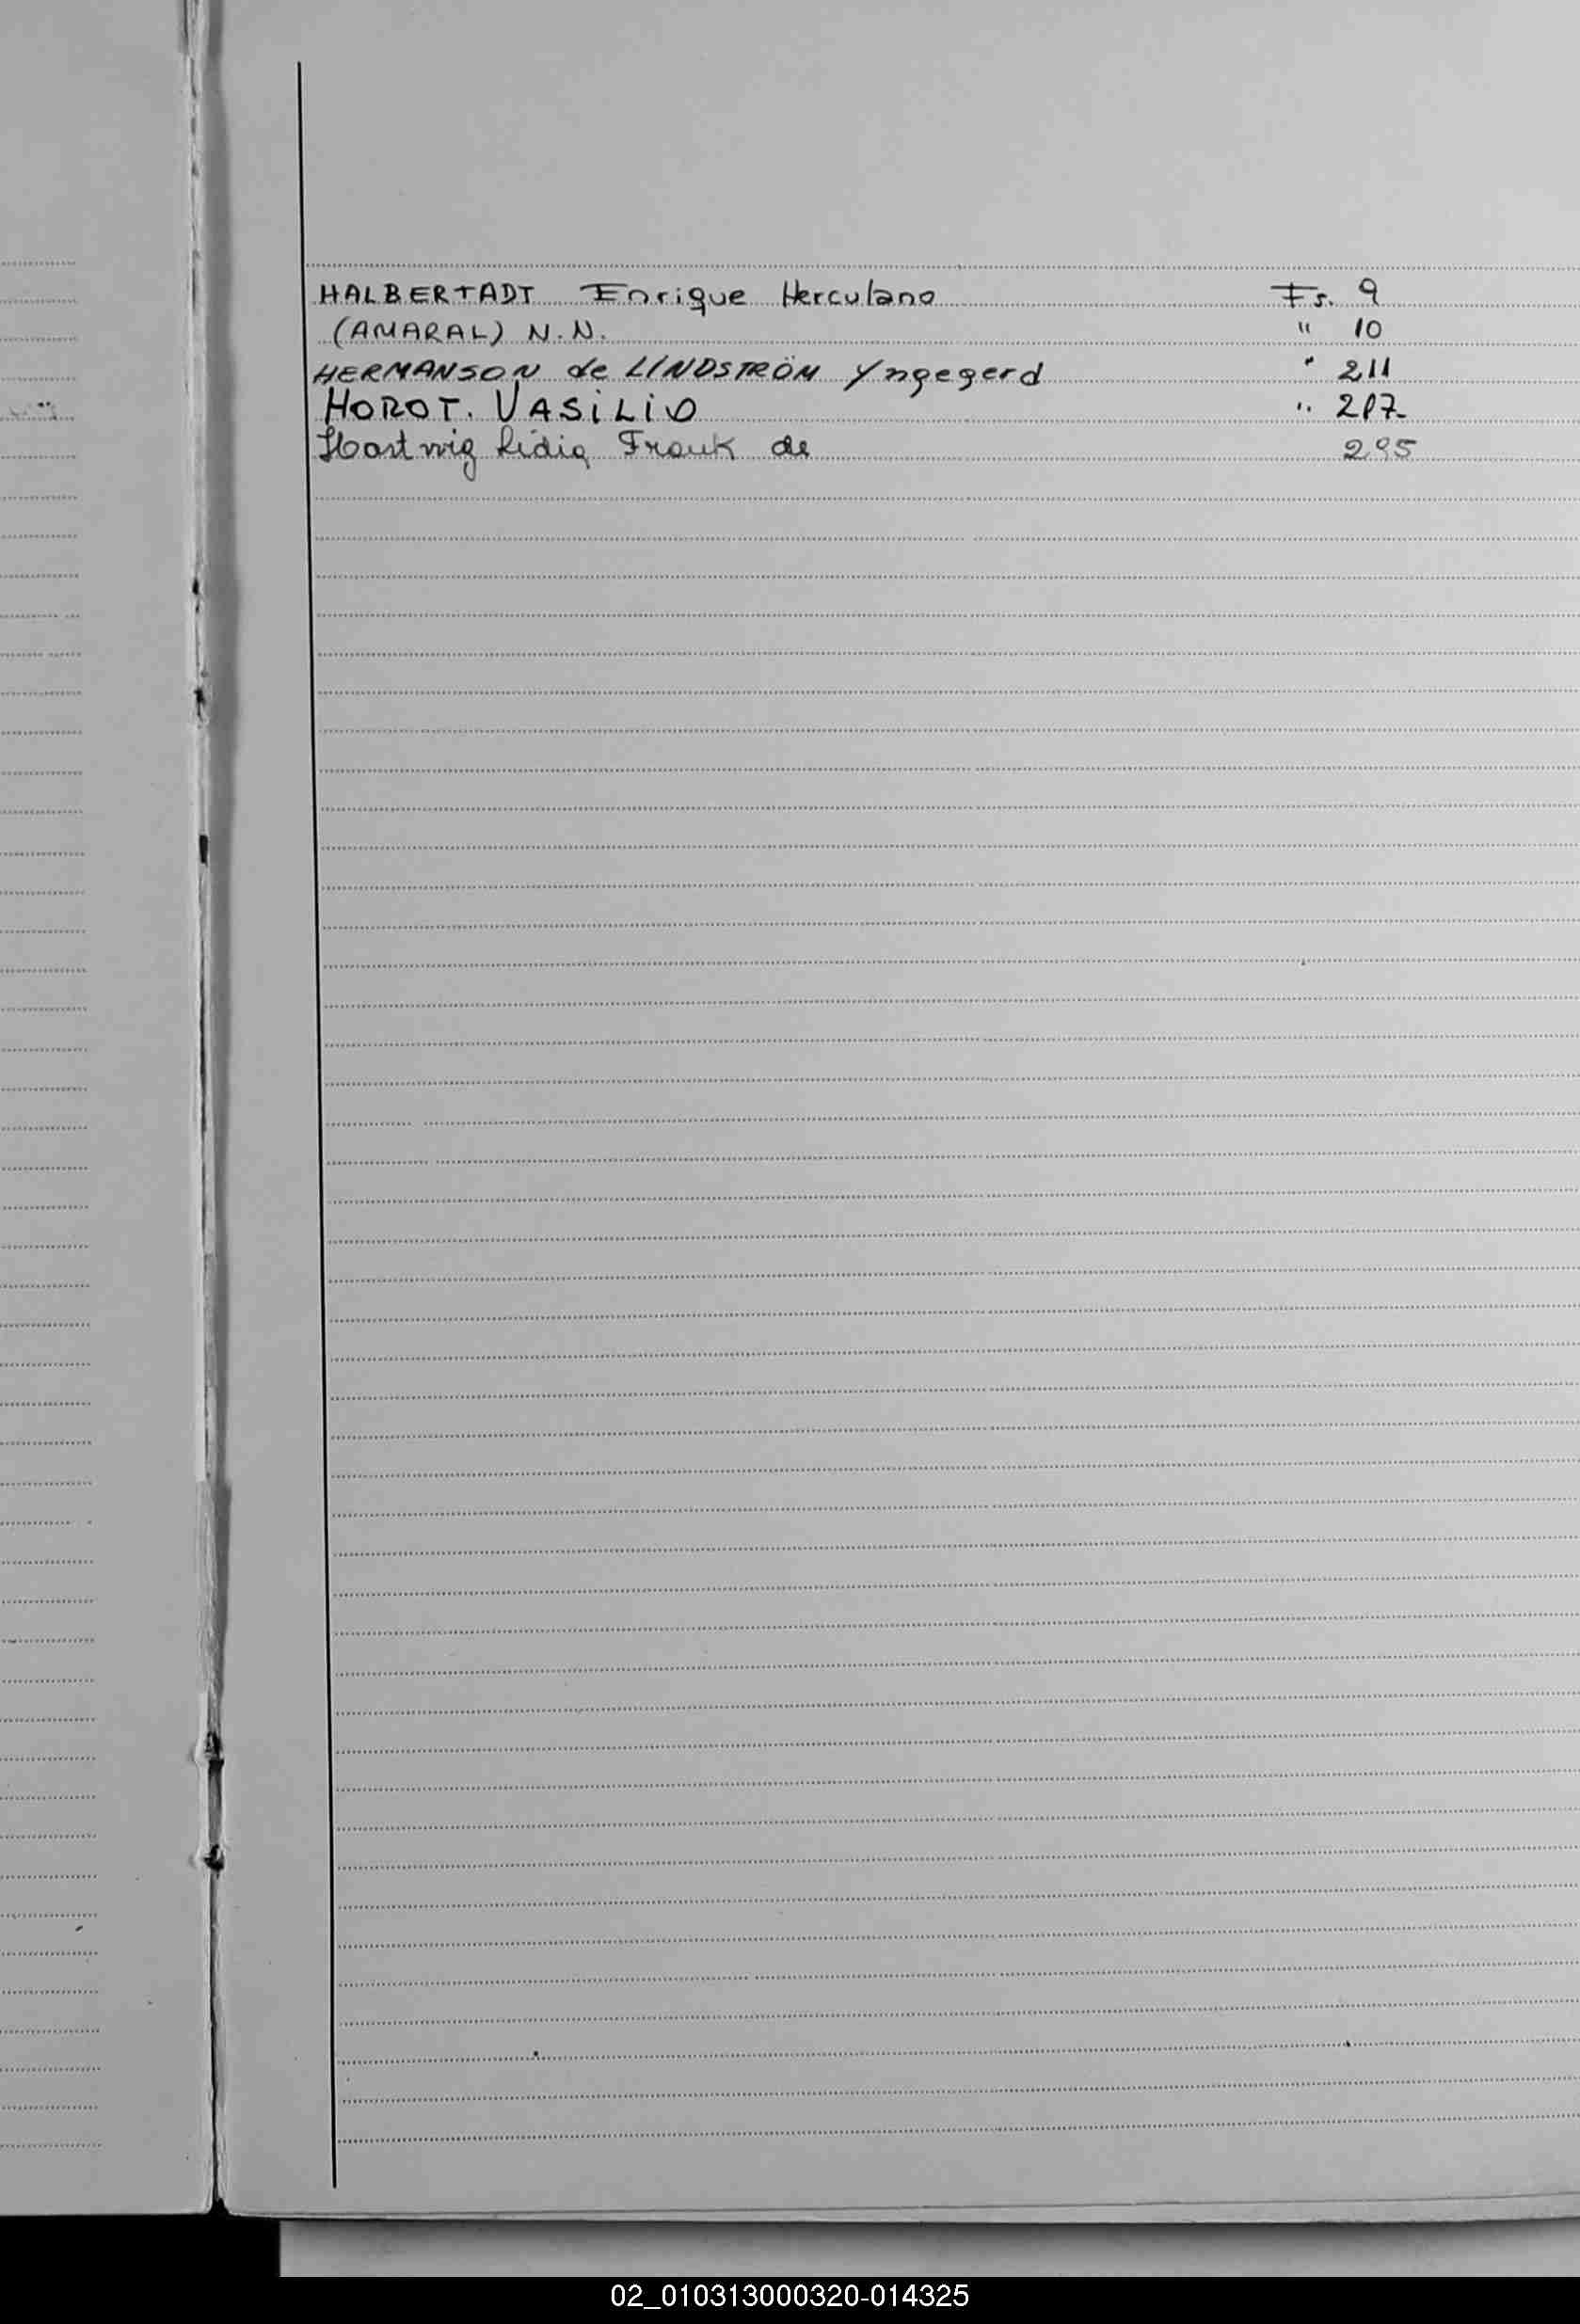 HALBERTADT Enrique Herculano Fs. 9
(AMARAL) N.N. " 10
HERMANSON de LINDSTRÖM Yngegerd " 211
HOROT. VASILIO " 217
Hartwig Lidia Frank de 295
02_010313000320-014325